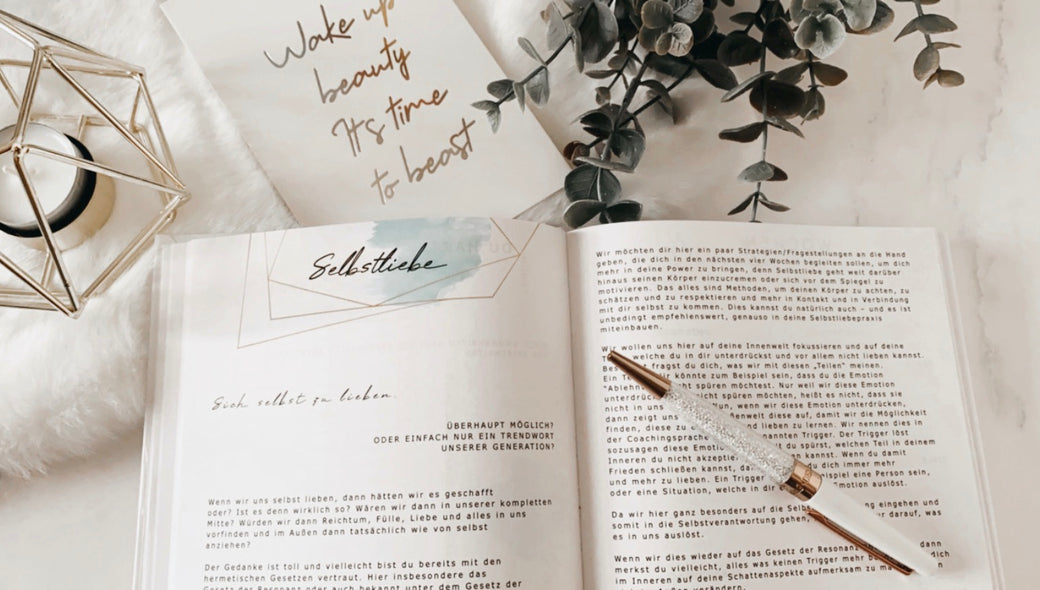 Wake up
beauty
It's time
to beast
Selbstliebe
Sich selbst zu lieben.
ÜBERHAUPT MÖGLICH?
ODER EINFACH NUR EIN TRENDWORT
UNSERER GENERATION?
Wenn wir uns selbst lieben, dann hätten wir es geschafft
oder? Ist es denn wirklich so? Wären wir dann in unserer kompletten
Mitte? Würden wir dann Reichtum, Fülle, Liebe und alles in uns
vorfinden und im Außen dann tatsächlich wie von selbst
anziehen?
Der Gedanke ist toll und vielleicht bist du bereits mit den
hermetischen Gesetzen vertraut. Hier insbesondere das
Gesetz der Resonanz oder auch bekannt unter dem Gesetz der
Wir möchten dir hier ein paar Strategien/Fragestellungen an die Hand
geben, die dich in den nächsten vier Wochen begleiten sollen, um dich
mehr in deine Power zu bringen, denn Selbstliebe geht weit darüber
hinaus seinen Körper einzucremen oder sich vor dem Spiegel zu
motivieren. Das alles sind Methoden, um deinen Körper zu achten, zu
schätzen und zu respektieren und mehr in Kontakt und in Verbindung
mit dir selbst zu kommen. Dies kannst du natürlich auch – und es ist
unbedingt empfehlenswert, genauso in deine Selbstliebepraxis
miteinbauen.
Wir wollen uns hier auf deine Innenwelt fokussieren und auf deine
welche du in dir unterdrückst und vor allem nicht lieben kannst.
fragst du dich, was wir mit diesen „Teilen" meinen.
Ein könnte zum Beispiel sein, dass du die Emotion
"Ablehn nicht spüren möchtest. Nur weil wir diese Emotion
unterdrü nicht spüren möchten, heißt es nicht, dass sie
nicht in uns wenn wir diese Emotion unterdrücken,
dann zeigt uns ßenwelt diese auf, damit wir die Möglichkeit
finden, diese zu und lieben zu lernen. Wir nennen dies in
der Coachingsprache annten Trigger. Der Trigger löst
sozusagen diese Emotio t du spürst, welchen Teil in deinem
Inneren du nicht akzeptie kannst. Wenn du damit
Frieden schließen kannst, da du dich immer mehr
und mehr zu lieben. Ein Trigger eispiel eine Person sein,
oder eine Situation, welche in dir Emotion auslöst.
Da wir hier ganz besonders auf die Selbs eingehen und
somit in die Selbstverantwortung gehen, darauf, was
es in uns auslöst.
Wenn wir dies wieder auf das Gesetz der Resonanz dann
merkst du vielleicht, alles was keinen Trigger mehr dich
im Inneren auf deine Schattenaspekte aufmerksam zu ma